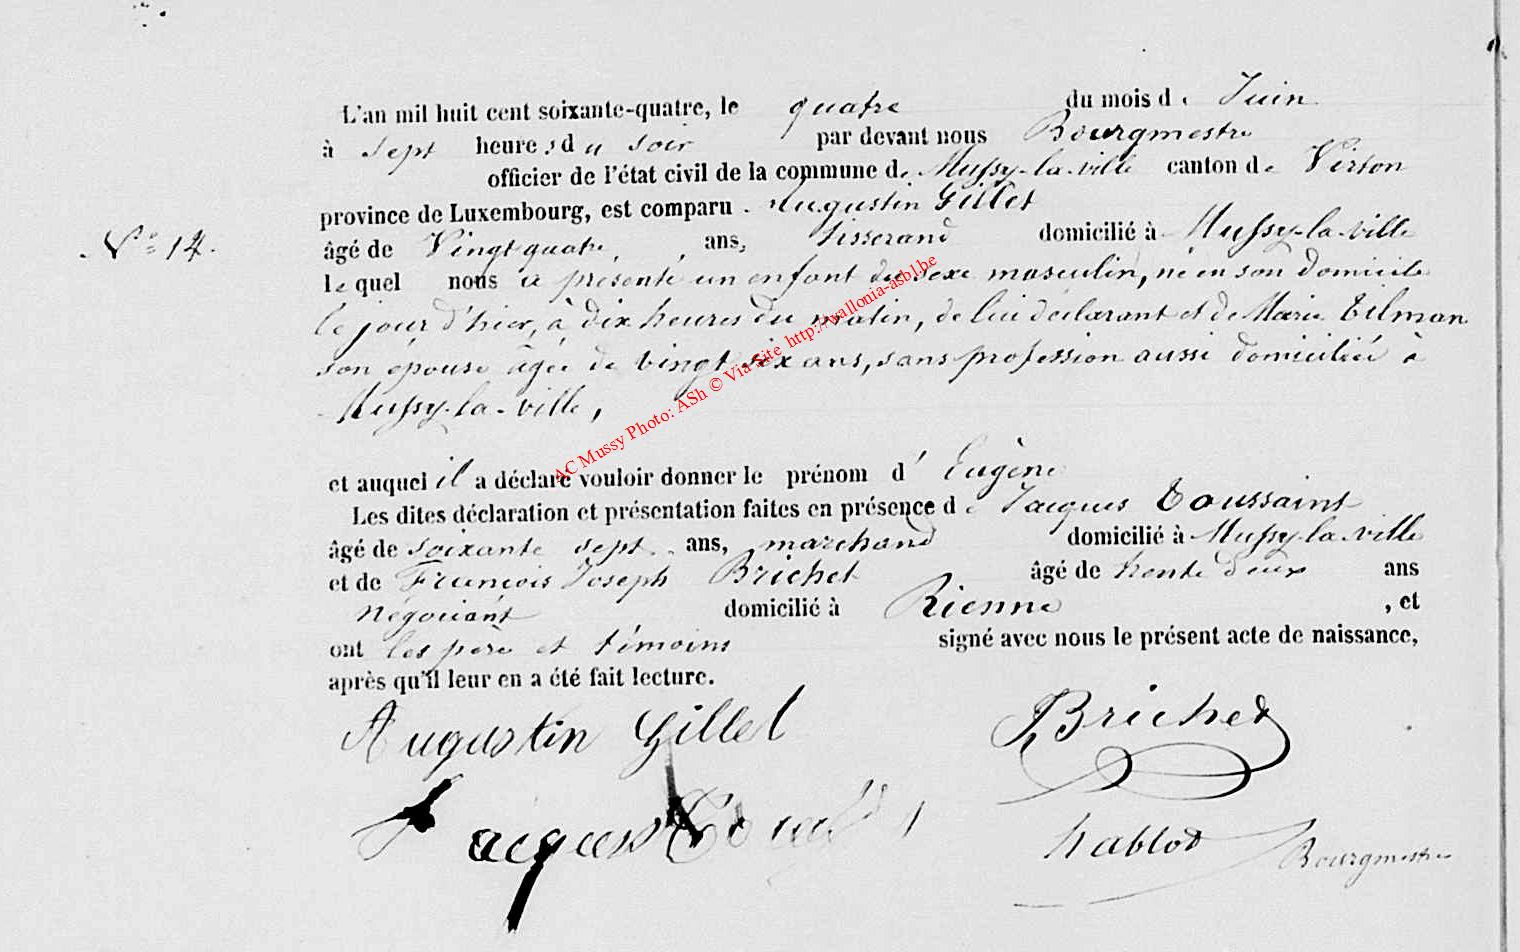 L'an mil huit cent soixante-quatre, le quatre du mois de Juin
à sept heures du soir par devant nous Bourgmestre
officier de l'état civil de la commune de Mussy-la-ville canton de Virton
province de Luxembourg, est comparu Augustin Gillet
N° 14. âgé de Vingt quatre ans, tisserand domicilié à Mussy-la-ville
lequel nous a présenté un enfant du sexe masculin, né en son domicile
le jour d'hier, à dix heures du matin, de lui déclarant et de Marie Tilman
son épouse âgée de vingt six ans, sans profession aussi domiciliée à
Mussy-la-ville,
et auquel il a déclaré vouloir donner le prénom d'Eugène
Les dites déclaration et présentation faites en présence de Jacques Toussaint
âgé de soixante sept ans, marchand domicilié à Mussy-la-ville
et de François Joseph Brichet âgé de trente deux ans
négociant domicilié à Rienne, et
ont les père et témoins signé avec nous le présent acte de naissance,
après qu'il leur en a été fait lecture.
Augustin Gillet Brichet
Jacques
hablot Bourgmestre
AC Mussy Photo: ASh © Via site http://wallonia-asbl.be